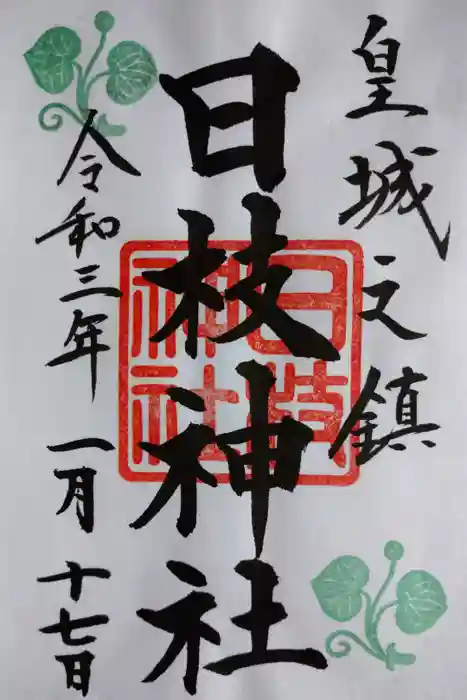 皇城之鎮
日枝神社
令和三年一月十七日
日枝神社